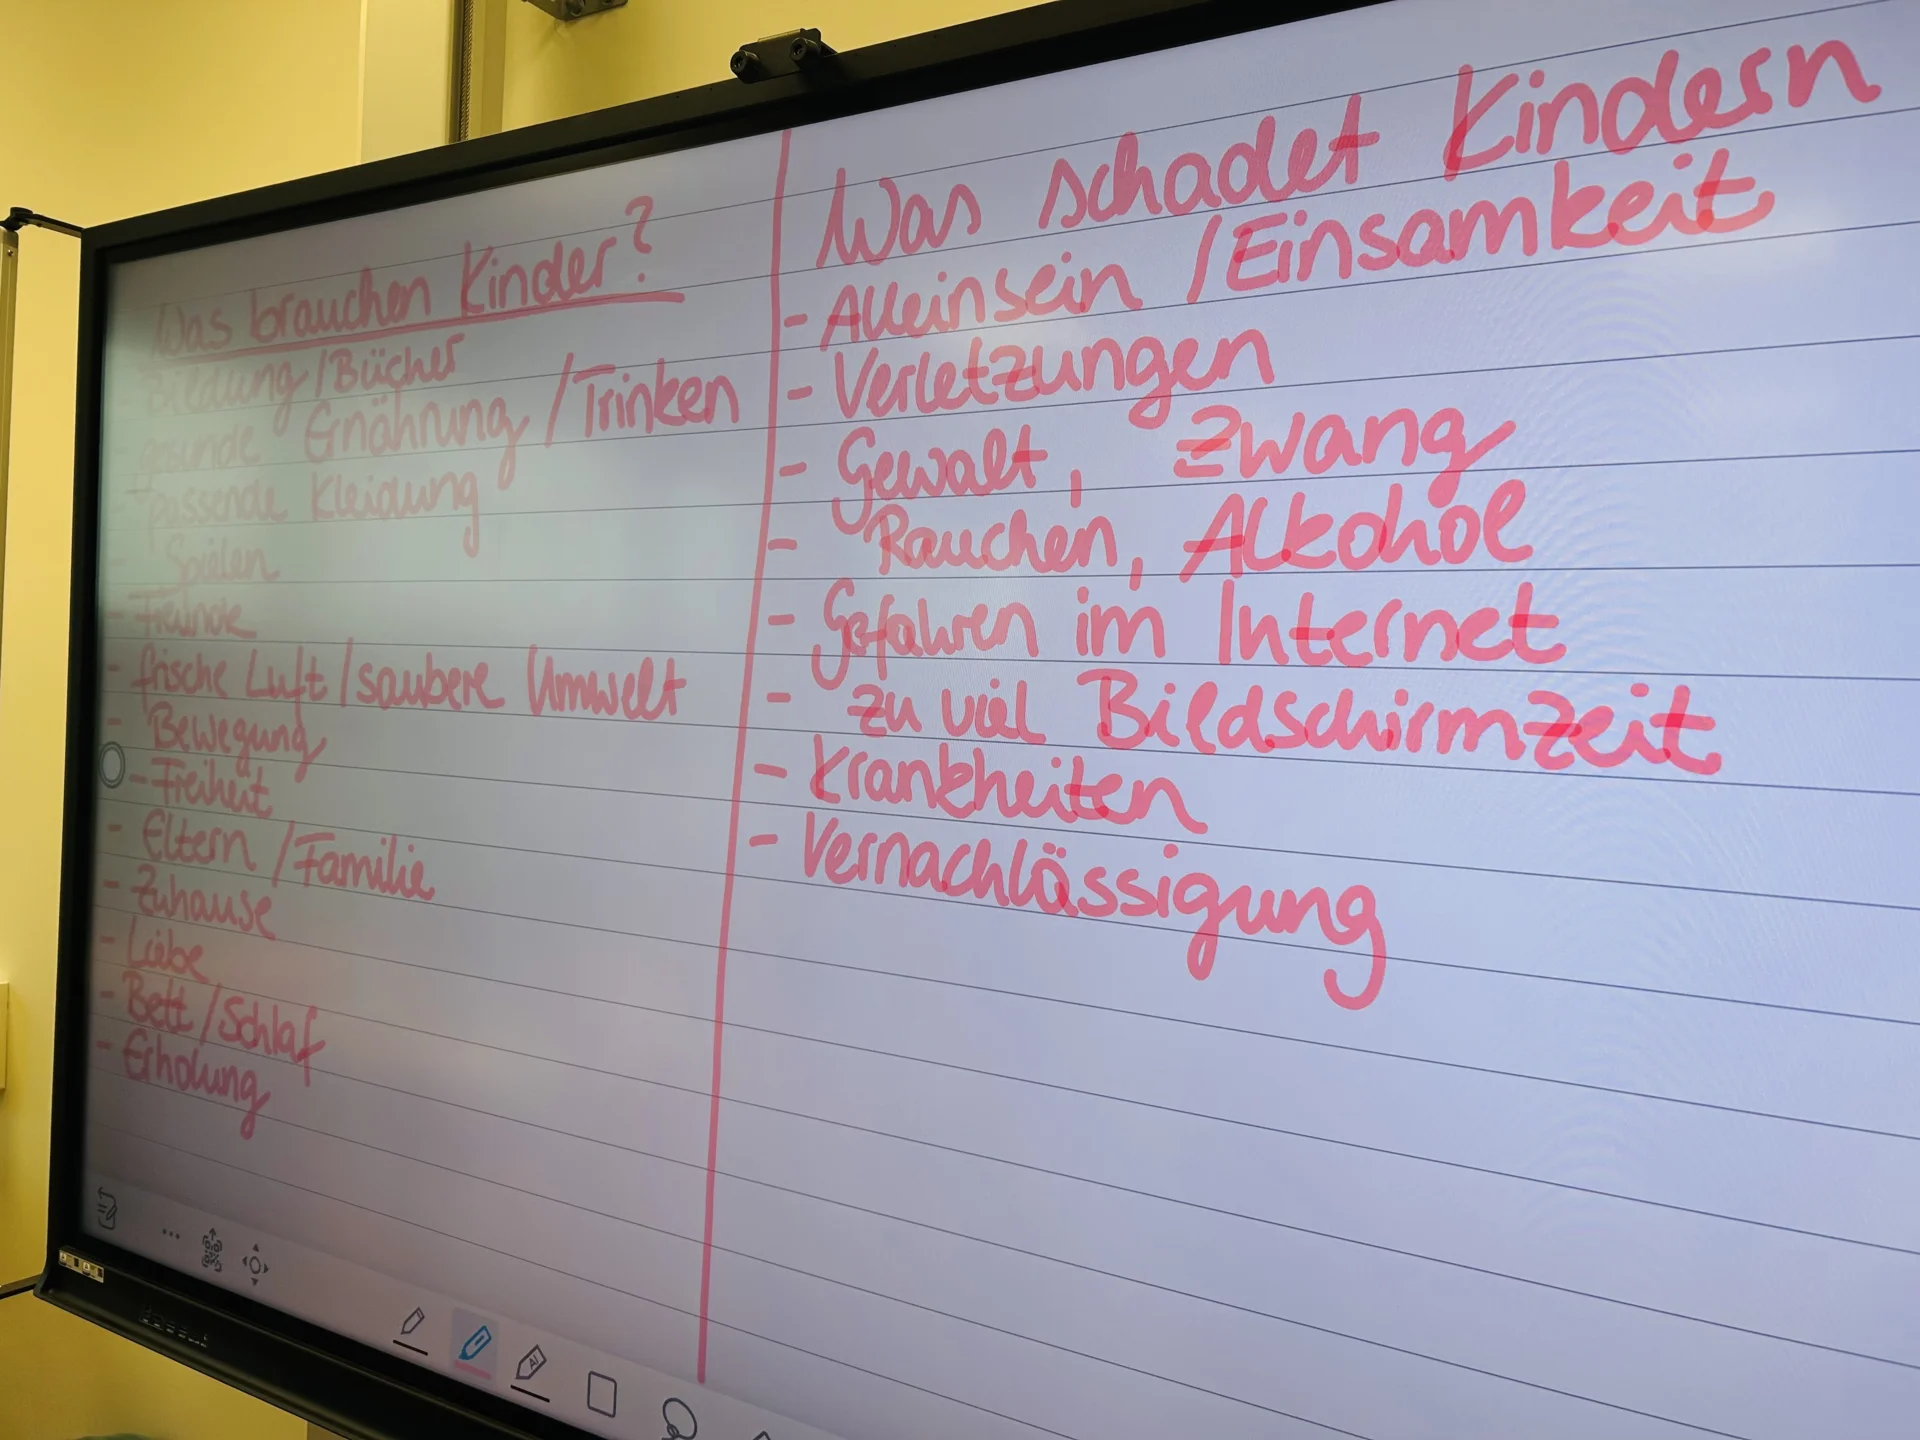 Was brauchen Kinder?
- Bildung/Bücher
- gesunde Ernährung/Trinken
- passende Kleidung
- Spielen
- Freunde
- frische Luft/saubere Umwelt
- Bewegung
- Freiheit
- Eltern/Familie
- Zuhause
- Liebe
- Bett/Schlaf
- Erholung
Was schadet Kindern
- Alleinsein/Einsamkeit
- Verletzungen
- Gewalt, Zwang
- Rauchen, Alkohol
- Gefahren im Internet
- zu viel Bildschirmzeit
- Krankheiten
- Vernachlässigung
AI